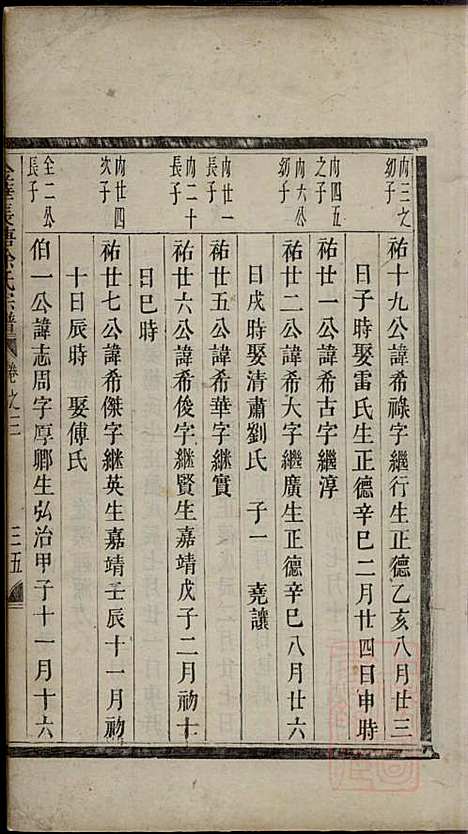 內三之
幼子
祐十九公諱希祿字繼行生正德乙亥八月廿三
日子時娶雷氏生正德辛巳二月廿四日申時
內四五
之子
祐廿一公諱希古字繼淳
內六公
幼子
祐廿二公諱希大字繼廣生正德辛巳八月廿六
日戌時娶清肅劉氏 子一 堯讓
內廿一
長子
祐廿五公諱希華字繼實
內二十
長子
祐廿六公諱希俊字繼賢生嘉靖戊子二月初十
日巳時
內廿四
次子
祐廿七公諱希傑字繼英生嘉靖壬辰十一月初
十日辰時 娶傅氏
全二公
長子
伯一公諱志周字厚卿生弘治甲子十一月十六
氏宗譜
卷之三
三五